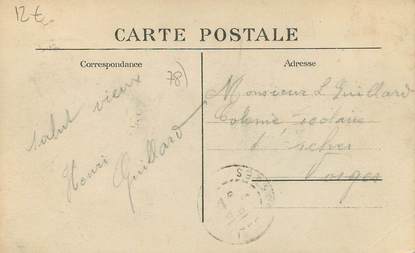 12 €
CARTE POSTALE
Correspondance
Adresse
78)
Salut vieux
Henri Guillard
Monsieur L Guillard
Colonie scolaire
Vosges